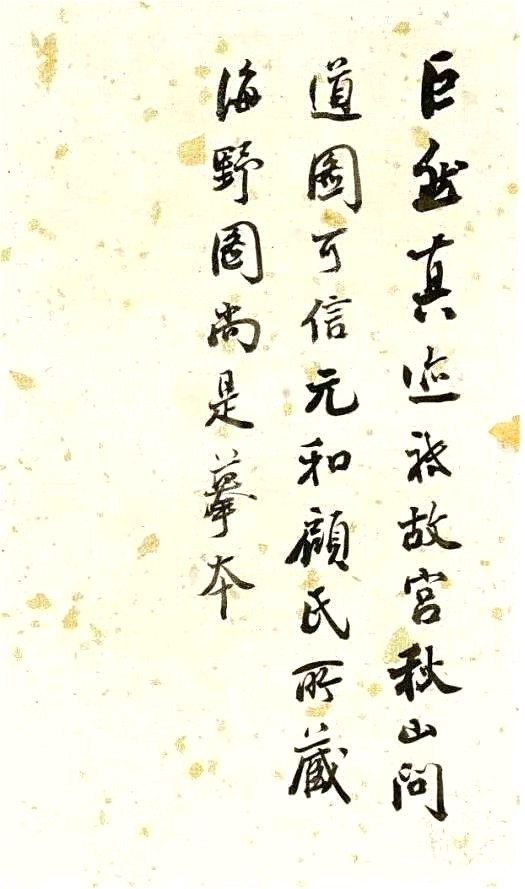 巨然真迹祗故宫秋山问
道图可信元和顾氏所藏
海野图尚是摹本